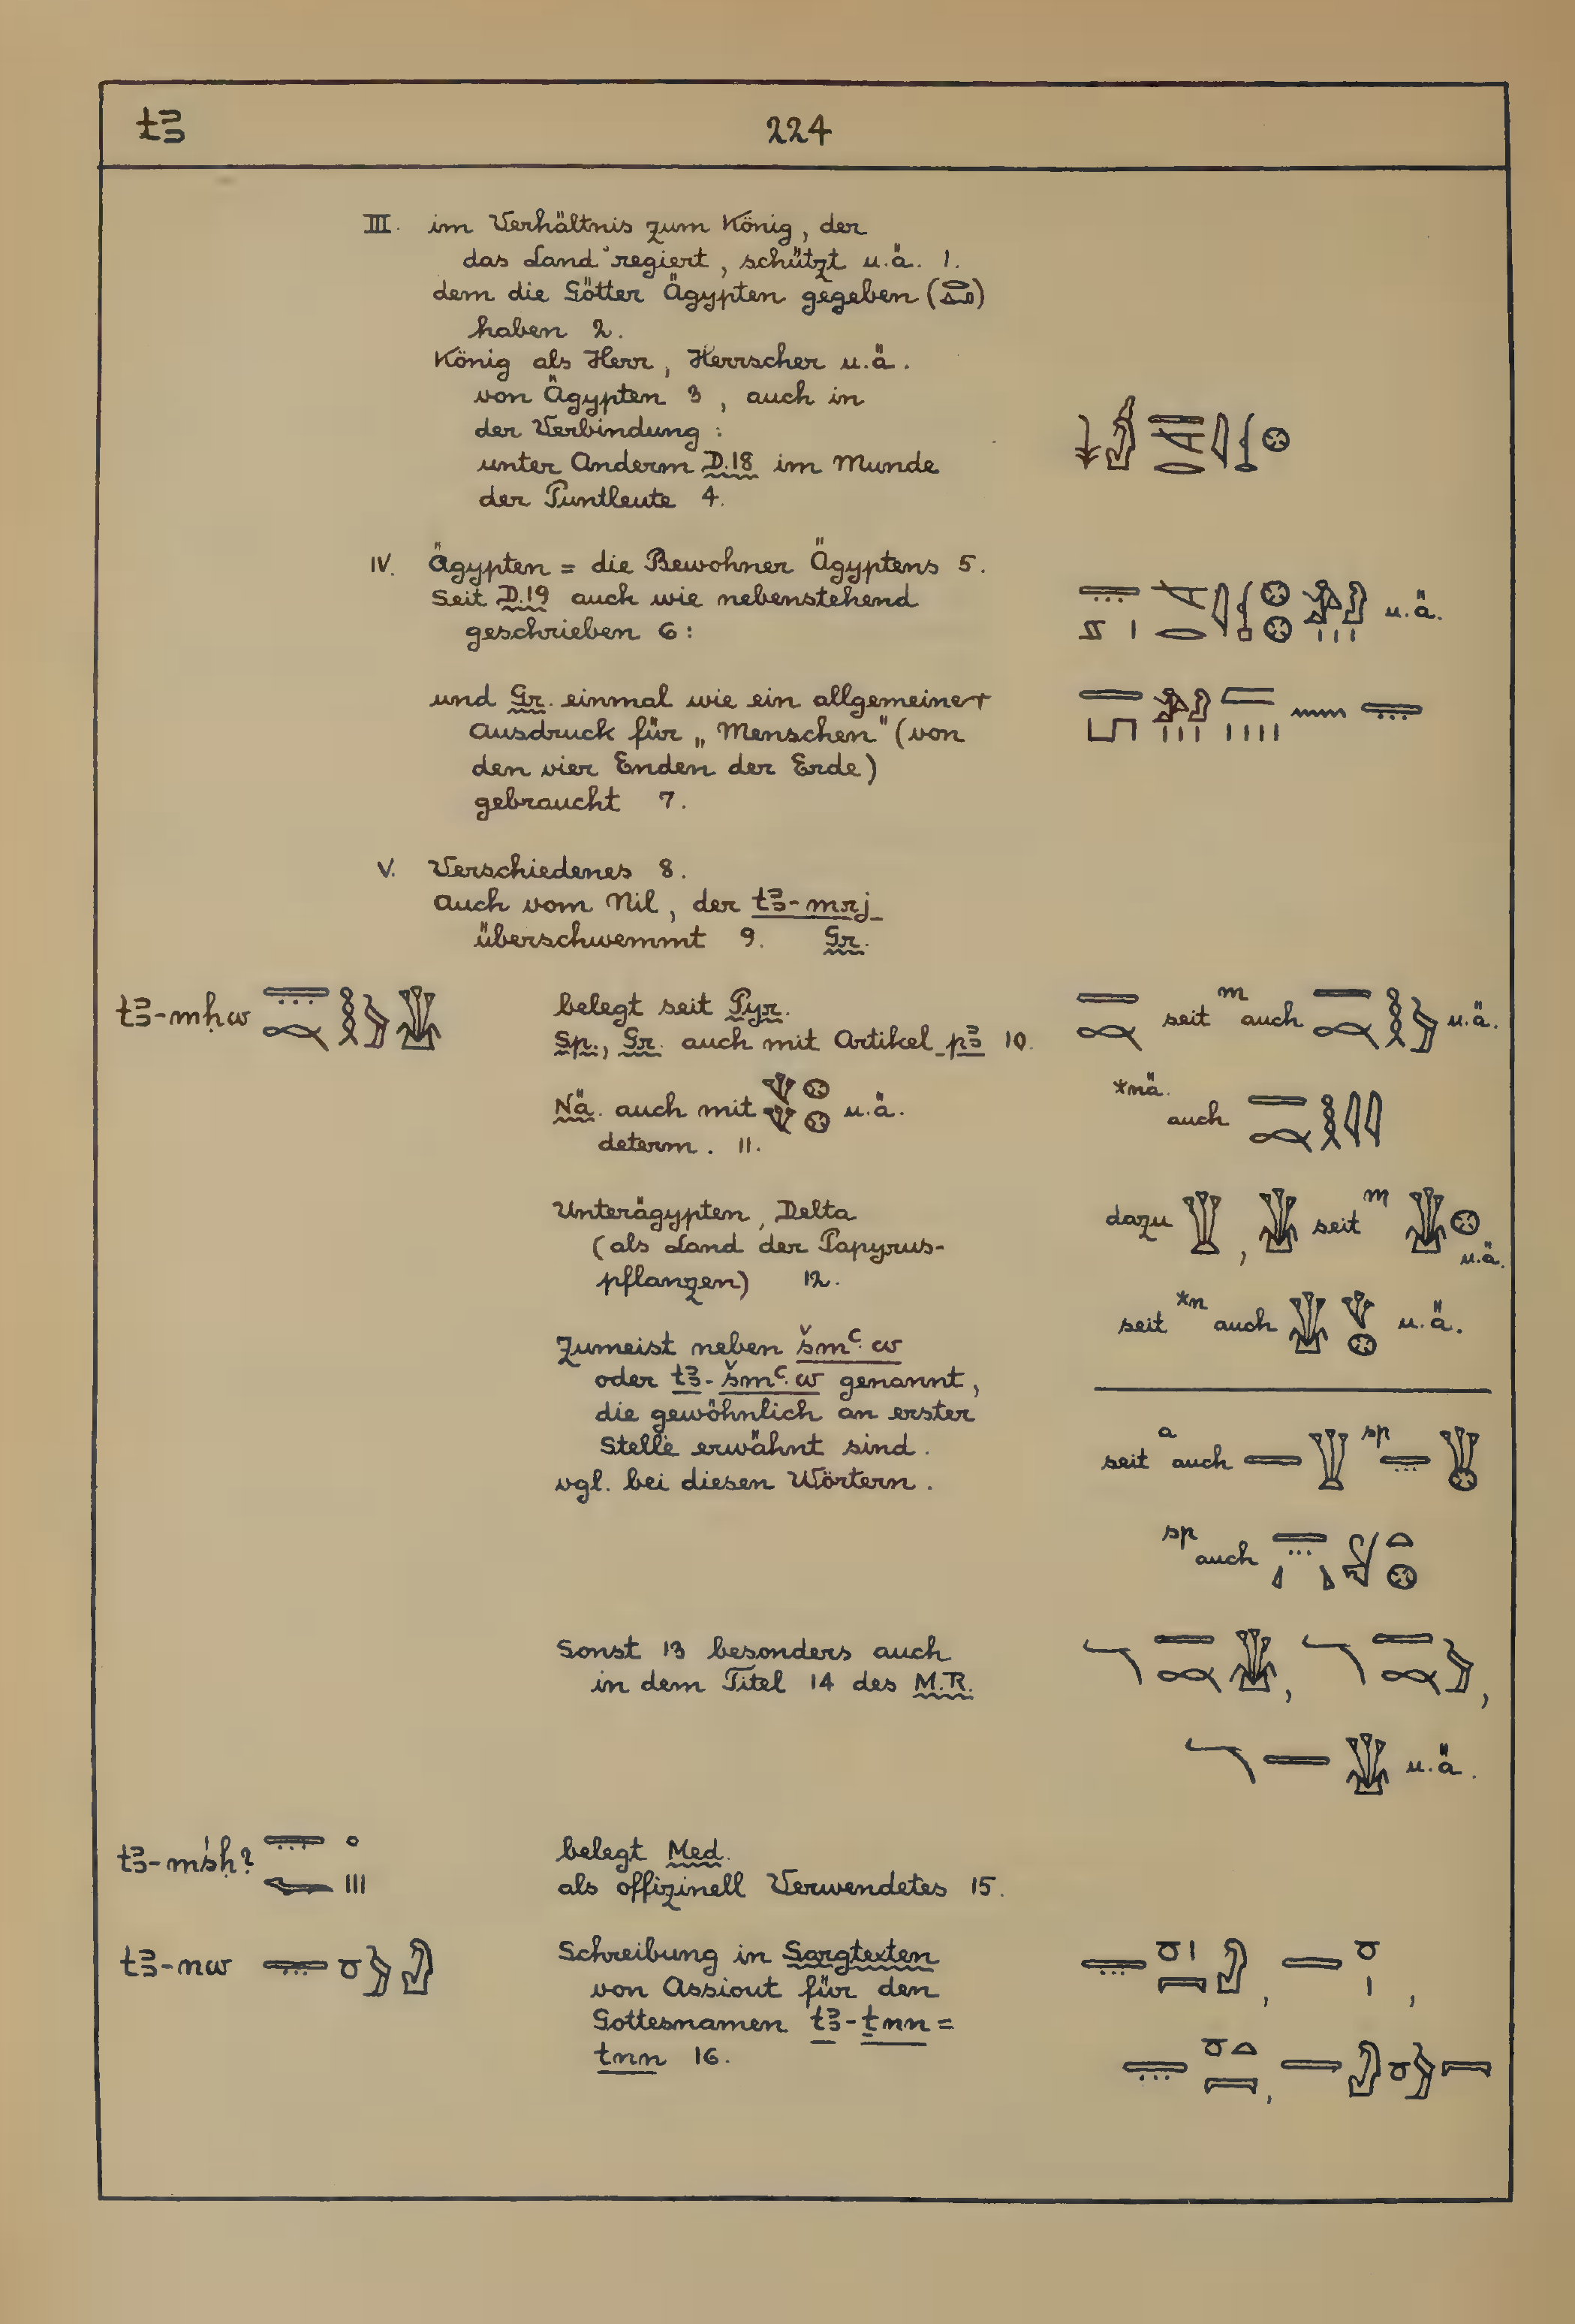 tꜣ
224
III. im Verhältnis zum König, der
das Land regiert, schützt u.ä. 1.
dem die Götter Ägypten gegeben ( )
haben 2.
König als Herr, Herrscher u.ä.
von Ägypten 3, auch in
der Verbindung:
unter Anderm D.18 im Munde
der Puntleute 4.
IV. Ägypten = die Bewohner Ägyptens 5.
Seit D.19 auch wie nebenstehend
geschrieben 6: u.ä.
und Gr. einmal wie ein allgemeiner
Ausdruck für „Menschen" (von
den vier Enden der Erde)
gebraucht 7.
V. Verschiedenes 8.
Auch vom Nil, der tꜣ-mrj
überschwemmt 9. Gr.
tꜣ-mḥw
belegt seit Pyr.
Sp., Gr. auch mit Artikel pꜣ 10.
Nä. auch mit u.ä.
determ. 11.
Unterägypten, Delta
(als Land der Papyrus-
pflanzen) 12.
Zumeist neben šmꜥ.w
oder tꜣ-šmꜥ.w genannt,
die gewöhnlich an erster
Stelle erwähnt sind.
vgl. bei diesen Wörtern.
seit m auch u.ä.
*nä. auch
dazu , seit m u.ä.
seit *n auch u.ä.
seit a auch sp
sp auch
Sonst 13 besonders auch
in dem Titel 14 des M.R.
, ,
u.ä.
tꜣ-mśḥ?
belegt Med.
als offizinell Verwendetes 15.
tꜣ-nw
Schreibung in Sargtexten
von Assiout für den
Gottesnamen tꜣ-ṯnn =
tnn 16.